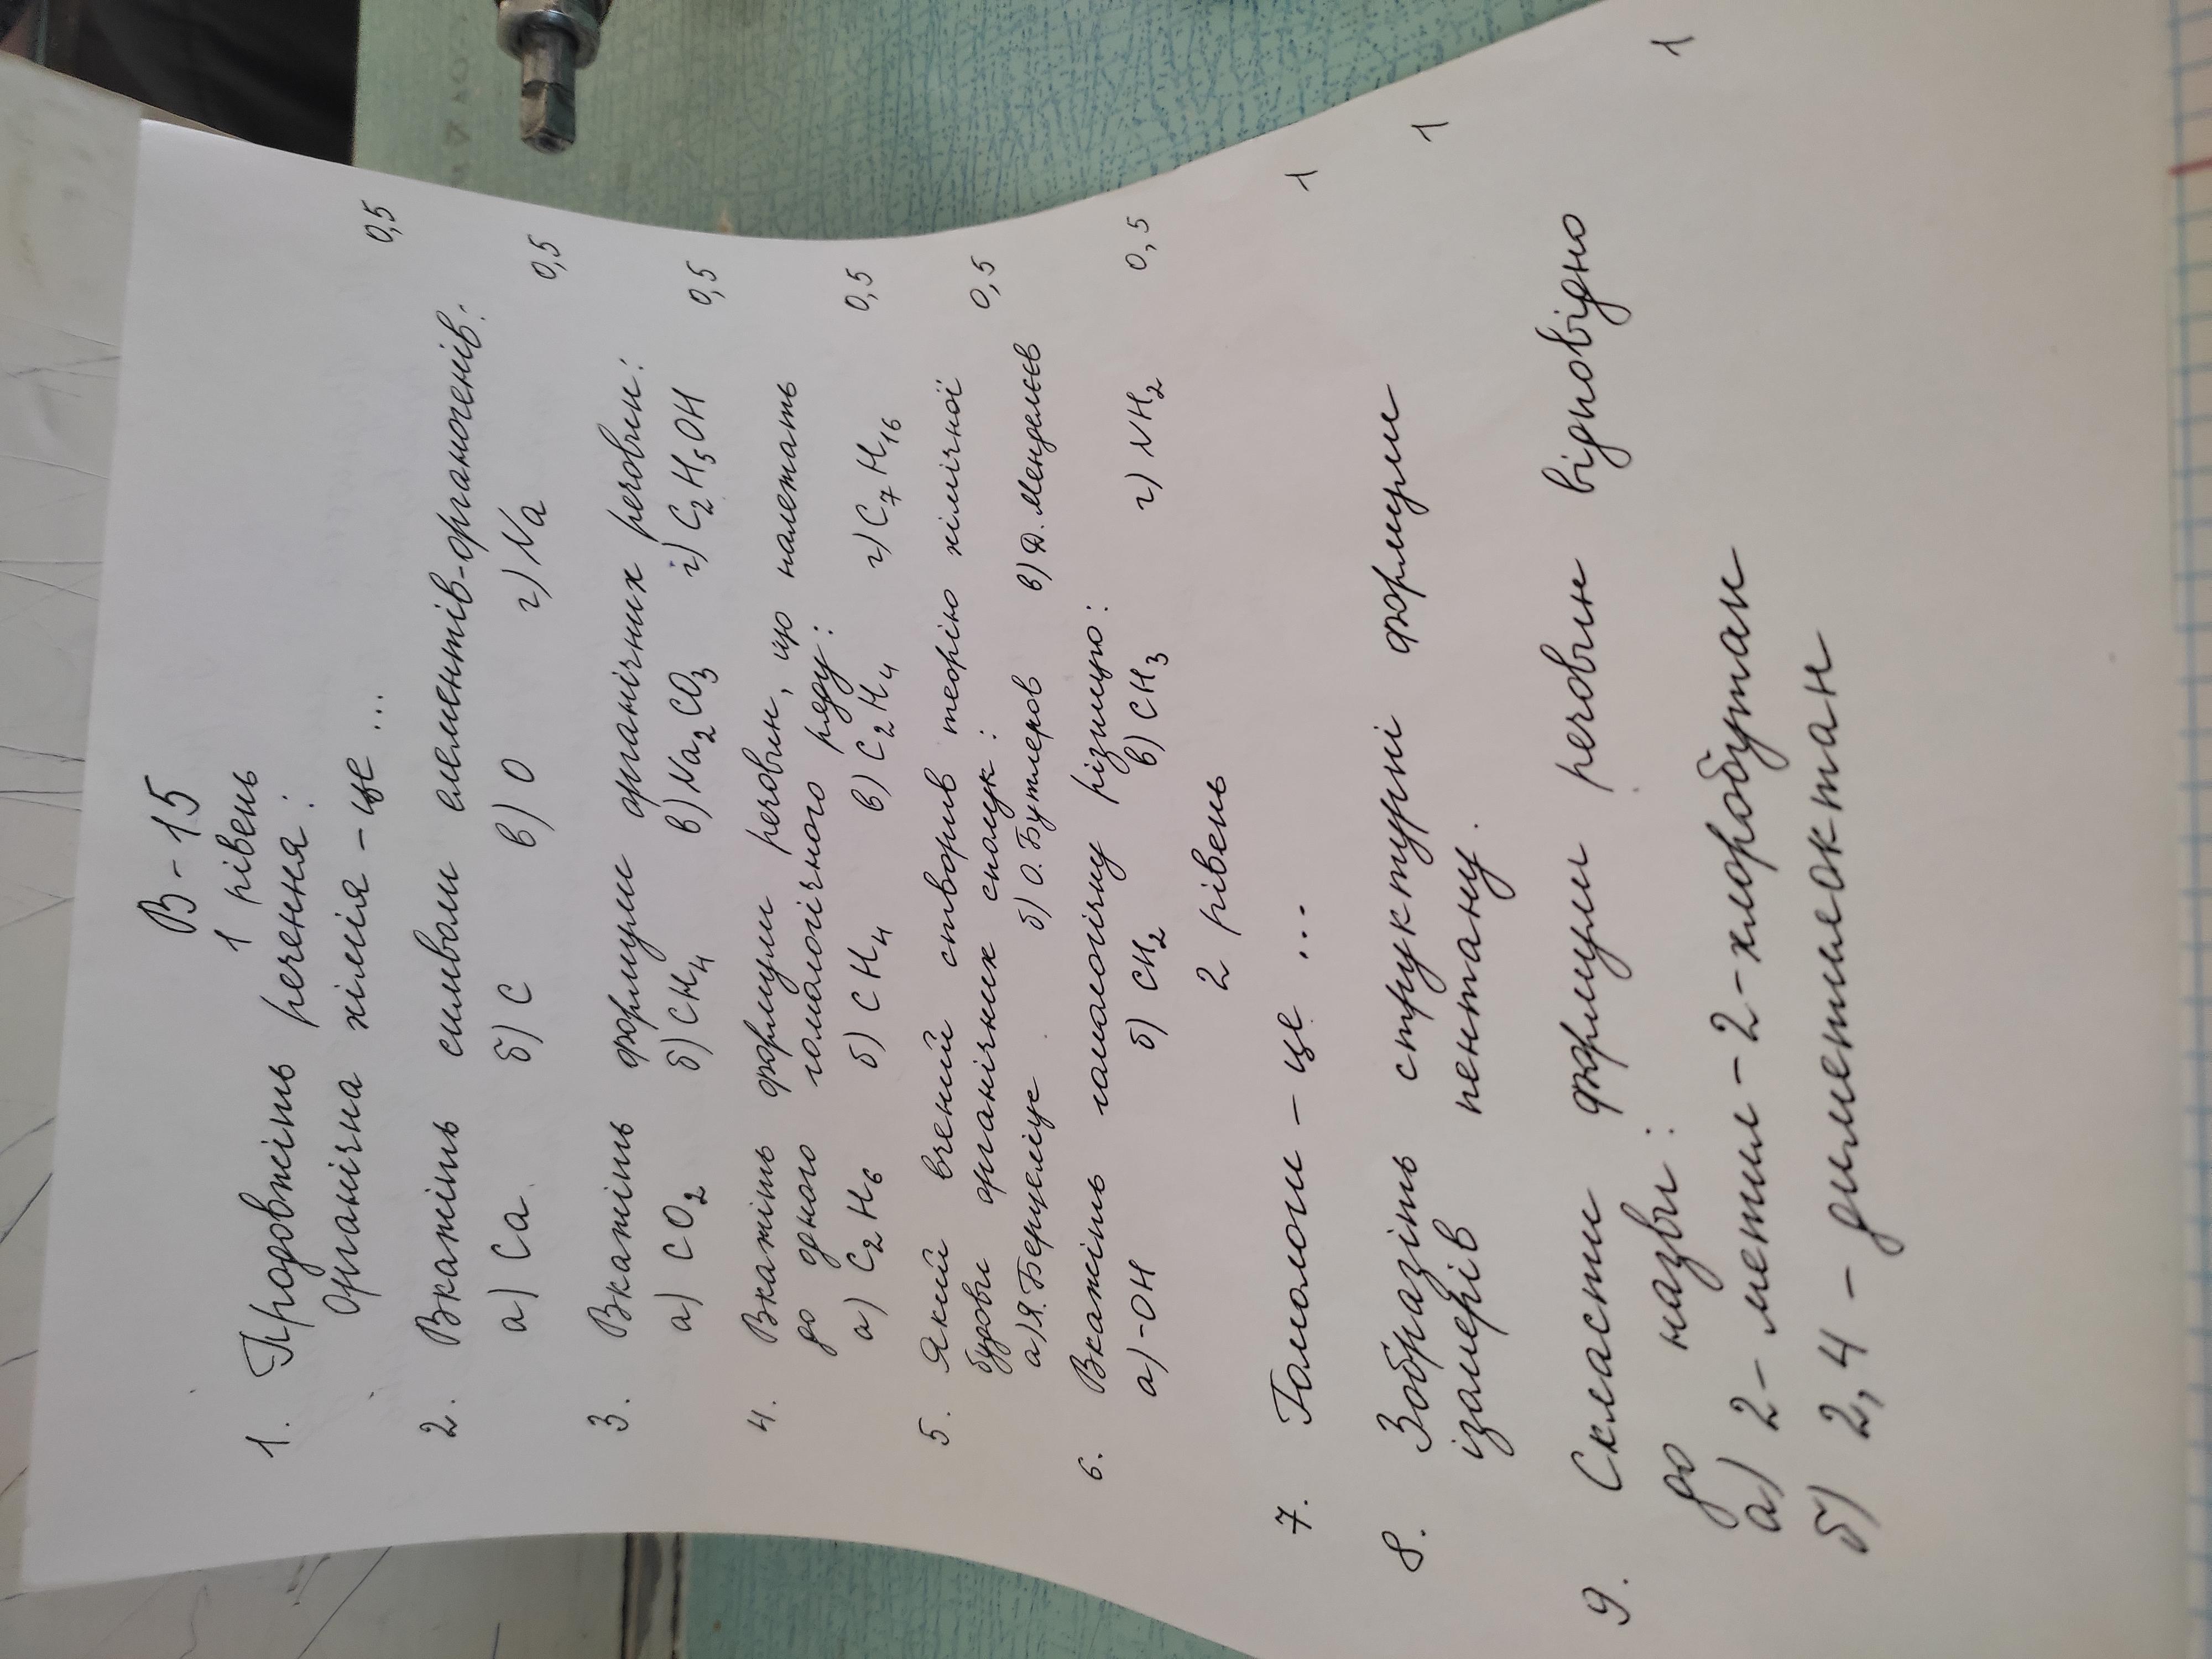 В - 15
1 рівень
1. Продовжіть речення:
Органічна хімія - це ... 0,5
2. Вкажіть символи елементів-органогенів:
а) Ca б) C в) O г) Na 0,5
3. Вкажіть формули органічних речовин:
а) CO2 б) CH4 в) Na2CO3 г) C2H5OH 0,5
4. Вкажіть формули речовин, що належать
до одного гомологічного ряду:
а) C2H6 б) CH4 в) C2H4 г) C7H16 0,5
5. Який вчений створив теорію хімічної
будови органічних сполук: 0,5
а) Я. Берцеліус б) О. Бутлеров в) Д. Менделєєв
6. Вкажіть гомологічну різницю:
а) -OH б) CH2 в) CH3 г) NH2 0,5
2 рівень
7. Гомологи - це ... 1
8. Зобразіть структурні формули
ізомерів пентану. 1
9. Скласти формули речовин відповідно
до назви: 1
а) 2 - метил - 2 - хлоробутан
б) 2,4 - диметилоктан